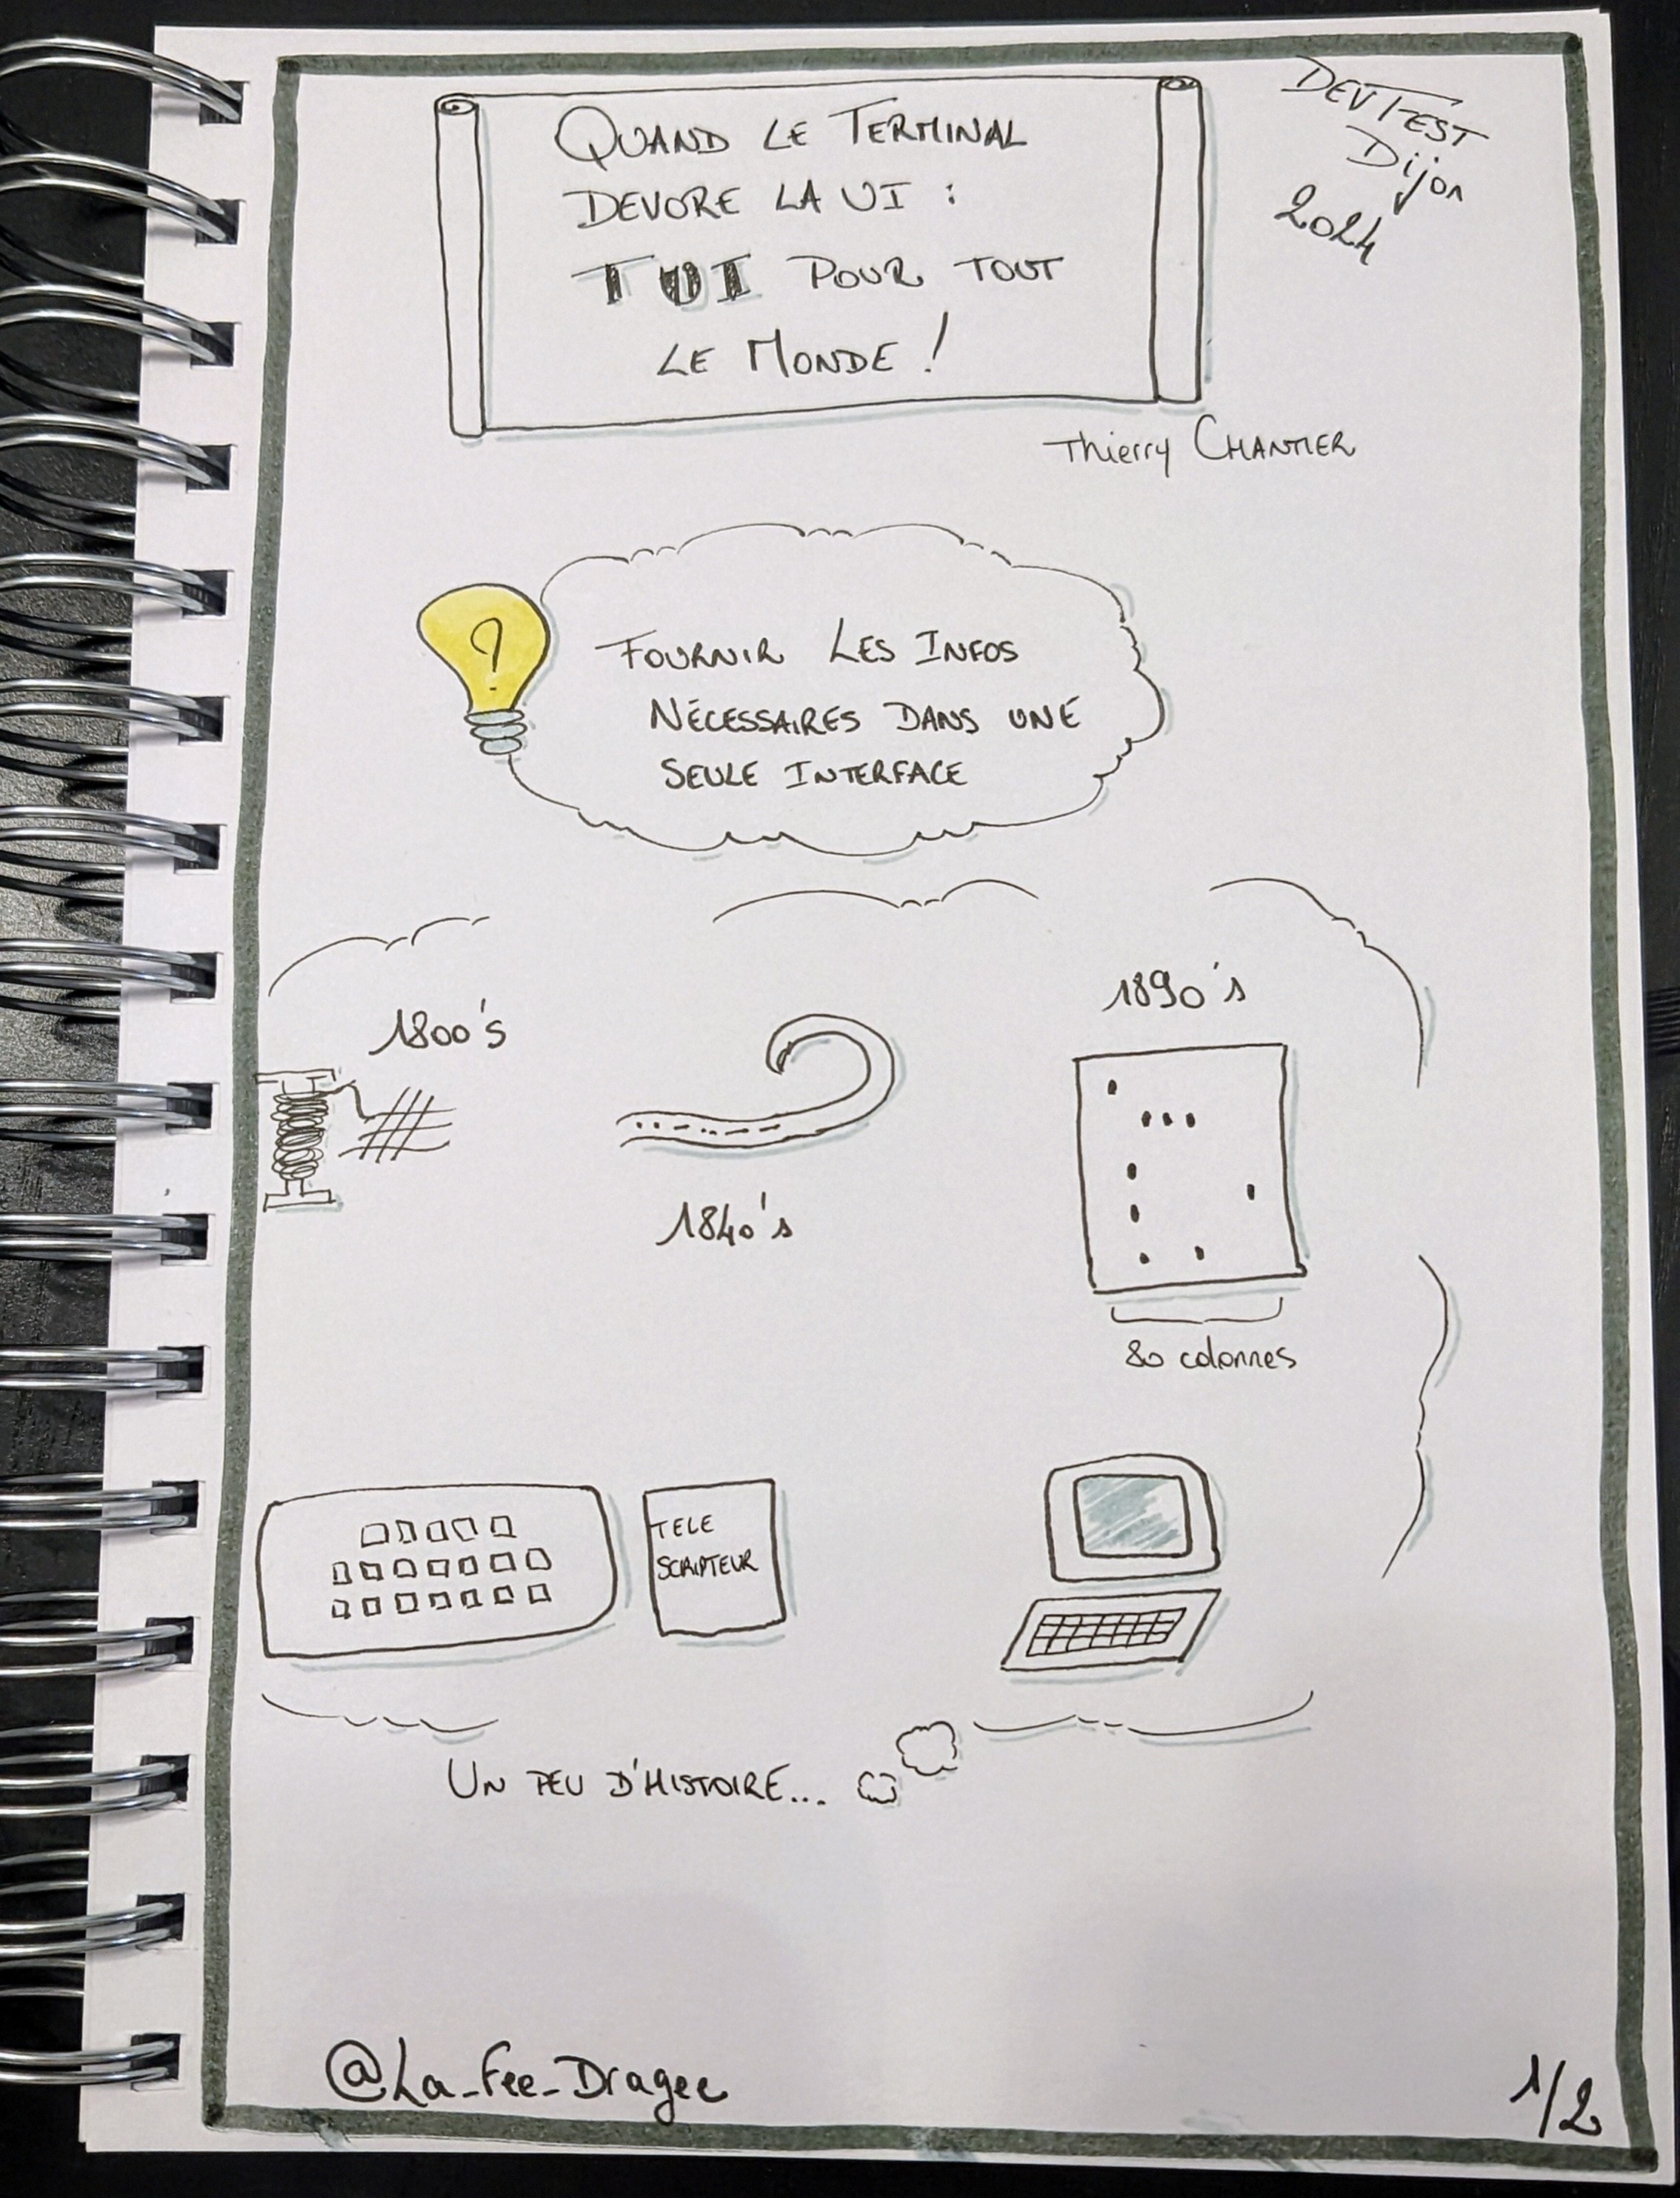 QUAND LE TERMINAL
DEVORE LA UI :
TUI POUR TOUT
LE MONDE !
DEVFEST
Dijon
2024
Thierry CHANTIER
?
FOURNIR LES INFOS
NÉCESSAIRES DANS UNE
SEULE INTERFACE
1800's
1840's
1890's
80 colonnes
TELE
SCRIPTEUR
UN PEU D'HISTOIRE...
@La_Fee_Dragee
1/2